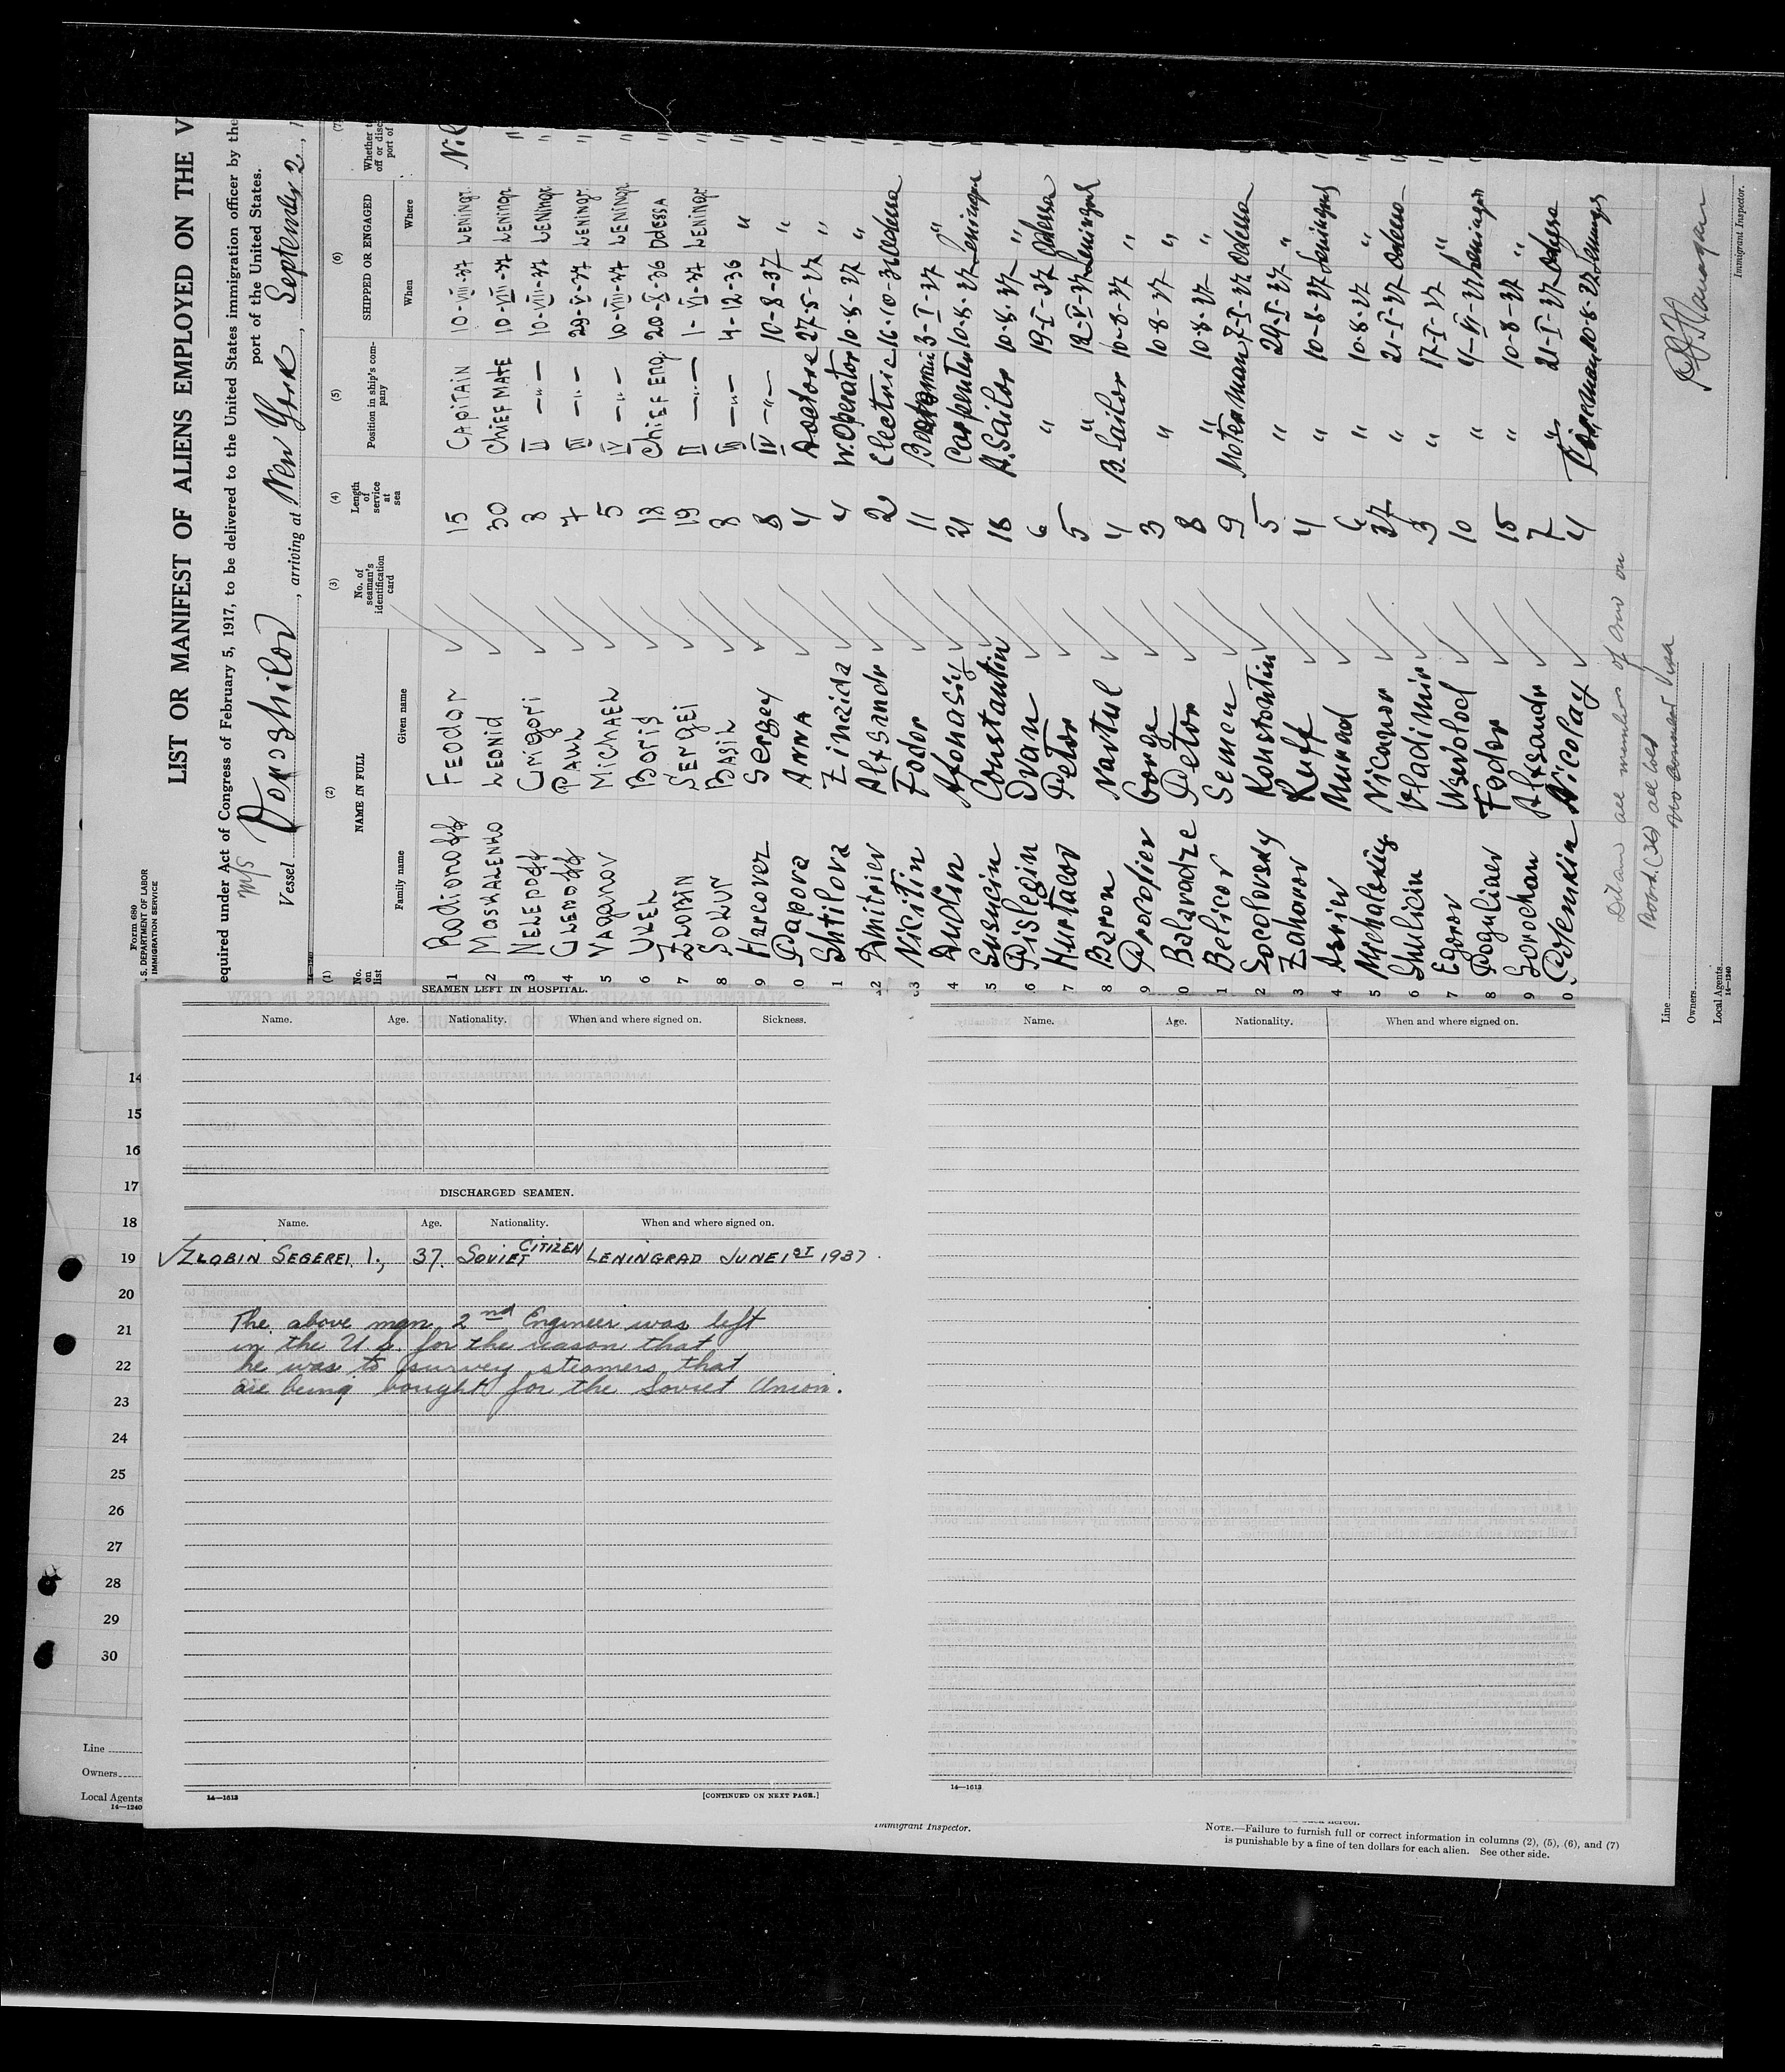 Form 680
S. DEPARTMENT OF LABOR
IMMIGRATION SERVICE
LIST OR MANIFEST OF ALIENS EMPLOYED ON THE V
equired under Act of Congress of February 5, 1917, to be delivered to the United States immigration officer by the
port of the United States.
M/S
Vessel , arriving at New York, September 2, 1
(1) (2) (3) (4) (5) (6) (7)
No. on list NAME IN FULL No. of seaman's identification card Length of service at sea Position in ship's company SHIPPED OR ENGAGED Whether to off or disc port of
Family name Given name When Where
1 Radionoff Feodor 15 CAPITAIN 10-VIII-37 LENINGR Nil
2 MOSKALENKO LEONID 30 CHIEF MATE 10-VIII-37 LENINGR "
3 Grigori 8 II —"— 10-VIII-37 LENINGR "
4 Paul 7 III —"— 29-V-37 LENINGR. "
5 VAGANOV MICHAEL 5 IV —"— 10-VIII-37 LENINGR "
6 BORIS 18 CHIEF ENG. 20-X-36 ODESSA "
7 ZLOBIN SERGEI 19 II —"— 1-VI-37 LENINGR "
8 SOKUR BASIL 8 III —"— 4-12-36 "
9 Sergey 8 IV —"— 10-8-37 "
0 Papova Anna 4 27-5-37 "
1 Shtilova Zinaida 4 W.Operator 10-8-37 "
2 Dmitriev Alxsandr 2 16-10-36 Odessa
3 Nicitin Fodor 11 3-I-37 "
4 Dudin Afonasiy 21 Carpenter 10-8-37 Leningrad
5 Constantin 18 A.Sailor 10-8-37 "
6 Pislegin Ivan 6 " 19-I-37 Odessa
7 Petor 5 " 12-V-37 Leningrad
8 Baron 4 B.Sailor 10-8-37 "
9 Procofiev George 3 " 10-8-37 "
0 Balavadze Petor 8 " 10-8-37 "
1 Belicov Semen 9 Motorman 7-I-37 Odessa
2 Socolovsky Konstantin 5 " 24-I-37 "
3 Zaharov Ruff 4 " 10-8-37 Leningrad
4 Murad 6 " 10-8-37 "
5 Nicanor 37 " 21-I-37 Odessa
6 Shulicin Vladimir 3 " 17-I-37 "
7 Egorov Wsevolod 10 " 4-VI-37 Leningr
8 Poguliaev Fodor 15 " 10-8-37 "
9 Sorochan Alxsandr 7 " 21-I-37 Odessa
0 Potemkin Nicolay 4 10-8-37 Leningr
all members of crew on
Board. (36) all told
Line
Owners
Local Agents
14—1240
Immigrant Inspector.
SEAMEN LEFT IN HOSPITAL.
Name. Age. Nationality. When and where signed on. Sickness.
DISCHARGED SEAMEN.
Name. Age. Nationality. When and where signed on.
√ZLOBIN SEGEREI. I., 37. SOVIET CITIZEN LENINGRAD JUNE 1ST 1937
The above man 2nd Engineer was left
in the U.S. for the reason that
he was to survey steamers that
are being bought for the Soviet Union.
14—1613
[CONTINUED ON NEXT PAGE.]
Name. Age. Nationality. When and where signed on.
14—1613
14
15
16
17
18
19
20
21
22
23
24
25
26
27
28
29
30
Line
Owners
Local Agents
14—1240
Immigrant Inspector.
NOTE.—Failure to furnish full or correct information in columns (2), (5), (6), and (7)
is punishable by a fine of ten dollars for each alien. See other side.